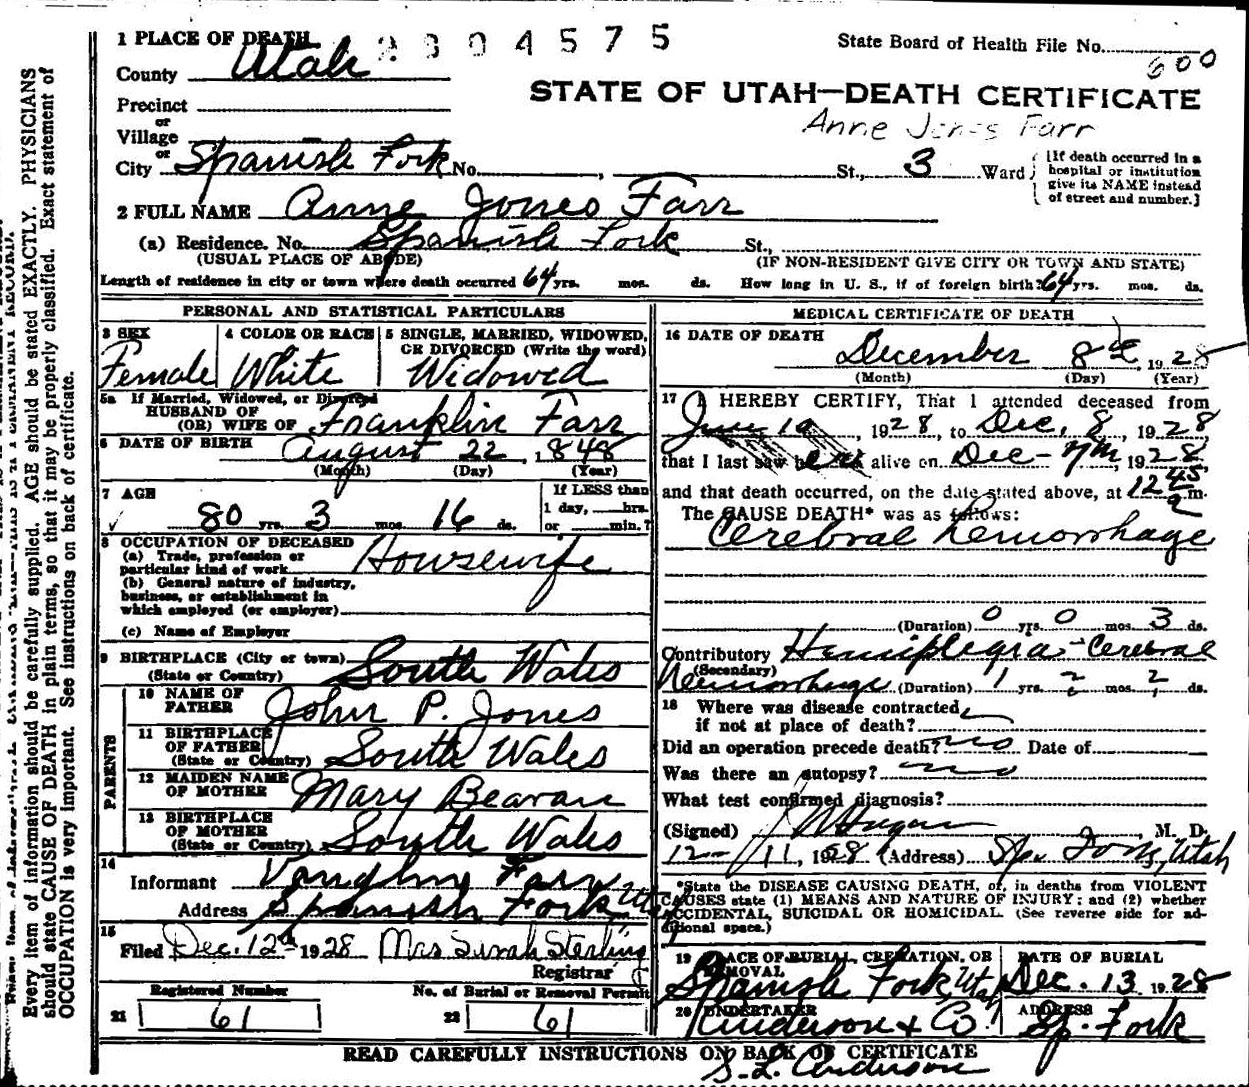 1 PLACE OF DEATH 2304575 State Board of Health File No. 600
County Utah
STATE OF UTAH—DEATH CERTIFICATE
Precinct
or
Village
Anne Jones Farr
or
City Spanish Fork No. , St., 3 Ward
[If death occurred in a hospital or institution give its NAME instead of street and number.]
2 FULL NAME Anne Jones Farr
(a) Residence. No. Spanish Fork St.,
(USUAL PLACE OF ABODE) (IF NON-RESIDENT GIVE CITY OR TOWN AND STATE)
Length of residence in city or town where death occurred 64 yrs. mos. ds. How long in U. S., if of foreign birth? 64 yrs. mos. ds.
PERSONAL AND STATISTICAL PARTICULARS
3 SEX
Female
4 COLOR OR RACE
White
5 SINGLE, MARRIED, WIDOWED, OR DIVORCED (Write the word)
Widowed
5a If Married, Widowed, or Divorced
HUSBAND OF
(OR) WIFE OF Franklin Farr
6 DATE OF BIRTH August 22, 1848
(Month) (Day) (Year)
7 AGE
80 yrs. 3 mos. 16 ds.
If LESS than
1 day, hrs.
or min.?
8 OCCUPATION OF DECEASED
(a) Trade, profession or
particular kind of work Housewife
(b) General nature of industry,
business, or establishment in
which employed (or employer)
(c) Name of Employer
9 BIRTHPLACE (City or town)
(State or Country) South Wales
PARENTS
10 NAME OF
FATHER John P. Jones
11 BIRTHPLACE
OF FATHER
(State or Country) South Wales
12 MAIDEN NAME
OF MOTHER Mary Beavan
13 BIRTHPLACE
OF MOTHER
(State or Country) South Wales
14
Informant Farr
Address Spanish Fork Utah
15
Filed Dec. 12th 1928 Mrs Sarah Sterling
Registrar
Registered Number No. of Burial or Removal Permit
21 61 22 61
MEDICAL CERTIFICATE OF DEATH
16 DATE OF DEATH
December 8th, 1928
(Month) (Day) (Year)
17 I HEREBY CERTIFY, That I attended deceased from
June 10, 1928, to Dec. 8, 1928
that I last saw her alive on Dec - 7th, 1928,
and that death occurred, on the date stated above, at 12 45 a m.
The CAUSE DEATH* was as follows:
Cerebral hemorrhage
(Duration) 0 yrs. 0 mos. 3 ds.
Contributory Hemiplegia - Cerebral
(Secondary)
Hemorrhage (Duration) 1 yrs. 2 mos. 2 ds.
18 Where was disease contracted
if not at place of death?
Did an operation precede death? no Date of
Was there an autopsy? no
What test confirmed diagnosis?
(Signed) , M. D.
12-11, 1928 (Address) Sp. Fork, Utah
*State the DISEASE CAUSING DEATH, or, in deaths from VIOLENT
CAUSES state (1) MEANS AND NATURE OF INJURY; and (2) whether
ACCIDENTAL, SUICIDAL OR HOMICIDAL. (See reverse side for ad-
ditional space.)
19 PLACE OF BURIAL, CREMATION, OR
REMOVAL
Spanish Fork, Utah
DATE OF BURIAL
Dec. 13 1928
20 UNDERTAKER
Anderson & Co
ADDRESS
Sp. Fork
READ CAREFULLY INSTRUCTIONS ON BACK OF CERTIFICATE
S. L. Anderson
Every item of information should be carefully supplied. AGE should be stated EXACTLY. PHYSICIANS
should state CAUSE OF DEATH in plain terms, so that it may be properly classified. Exact statement of
OCCUPATION is very important. See instructions on back of certificate.